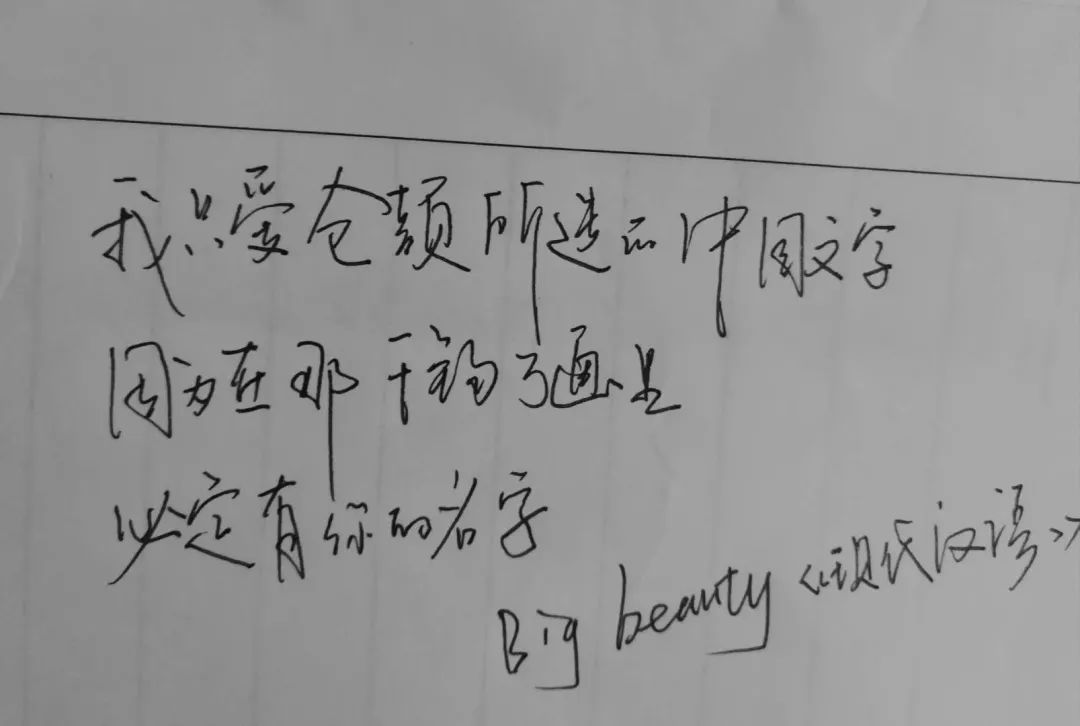 我只爱仓颉所造的中国文字
因为在那千钩万画里
必定有你的名字
Big beauty《现代汉语》